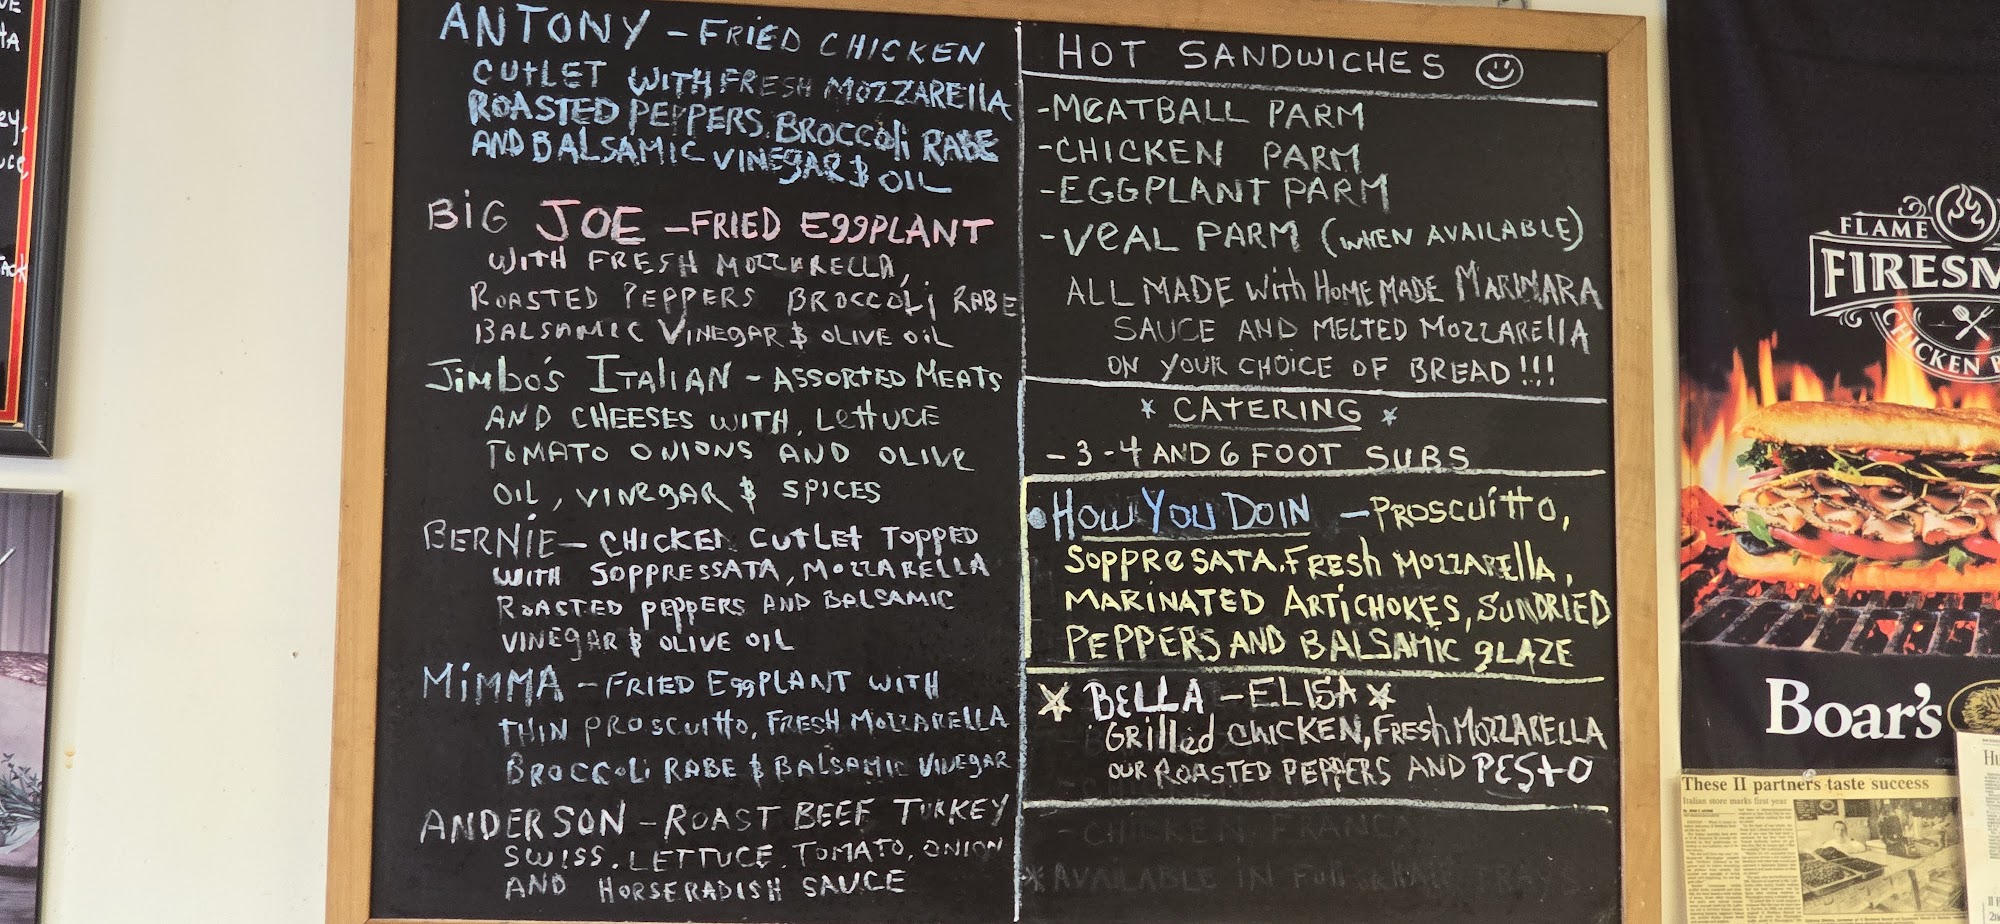 ANTONY - FRIED CHICKEN
CUTLET WITH FRESH MOZZARElla
ROASTED PEPPERS, BROCCOLi RABE
AND BALSAMIC VINEGAR $ OIL
BiG JOE - FRIED EggPLANT
WITH FRESH MOZZARELLA,
ROASTED PEPPERS BROCCOLi RABE
BALSAMIC VINEGAR $ OLIVE OIL
Jimbo's ITALIAN - ASSORTED MEATS
AND CHEESES WITH, LETTUCE
TOMATO ONIONS AND OLIVE
OIL, VINEGAR $ SPICES
BERNIE - CHICKEN CUTLET TOPPED
WITH SOPPRESSATA, MOZZARELLA
ROASTED PEPPERS AND BALSAMIC
VINEGAR $ OLIVE OIL
MiMMA - FRIED EggPLANT WITH
THIN PROSCUITTO, FRESH MOZZARELLA
BROCCOLi RABE $ BALSAMIC VINEGAR
ANDERSON - ROAST BEEF TURKEY
SWISS. LETTUCE. TOMATO, ONION
AND HORSERADISH SAUCE
HOT SANDWICHES ☺
-MEATBALL PARM
-CHICKEN PARM
-EGGPLANT PARM
-VEAL PARM (WHEN AVAILABLE)
ALL MADE WITH HOMEMADE MARINARA
SAUCE AND MELTED MOZZARElla
ON YOUR CHOICE OF BREAD!!!
* CATERING *
- 3 - 4 AND 6 FOOT SUBS
• HOW YOU DOIN - PROSCUITTO,
SOPPRESATA. FRESH MOZZARElla,
MARINATED ARTICHOKES, SUNDRIED
PEPPERS AND BALSAMIC GLAZE
* BELLA - ELISA *
GRilled CHICKEN, FRESH MOZZARELLA
OUR ROASTED PEPPERS AND PESTO
- CHICKEN FRANCA
*AVAILABLE IN FULL
FLAME
CHICKEN
Boar's
These II partners taste success
Italian store marks first year